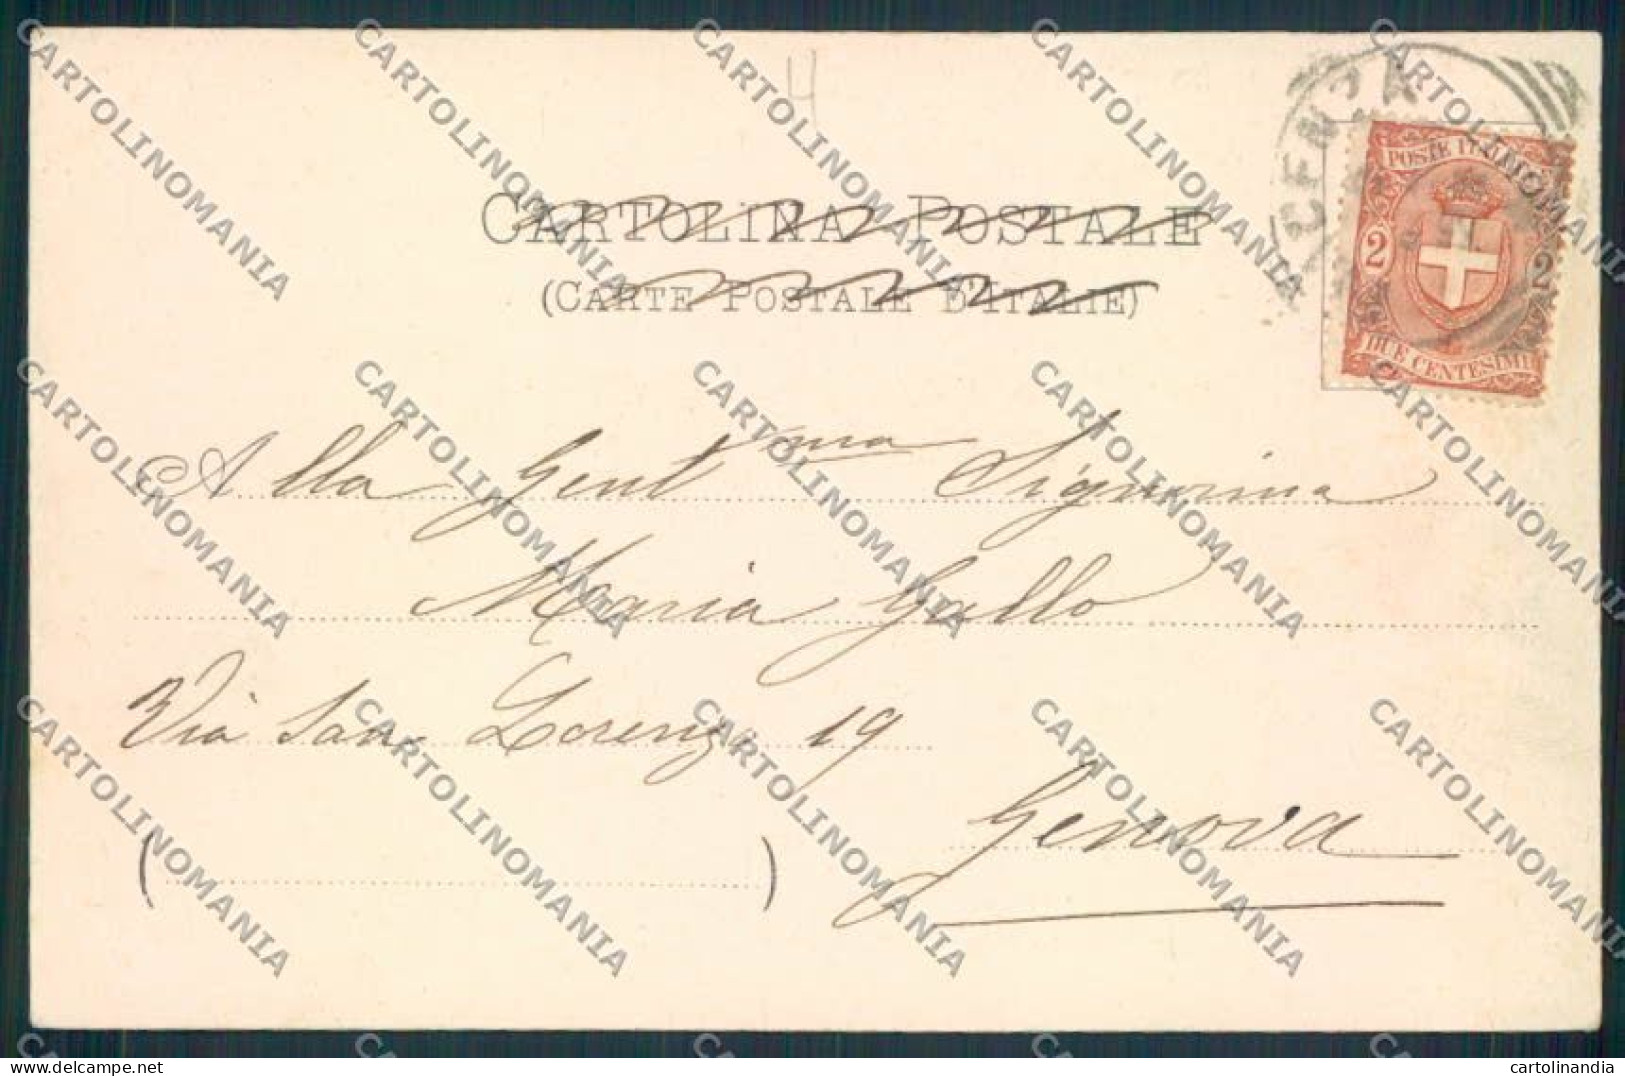 4
CARTOLINA POSTALE
(CARTE POSTALE D'ITALIE)
POSTE ITALIANE
2 2
DUE CENTESIMI
Alla Gent.ma Signorina
Maria Gallo
Via San Lorenzo 19
Genova
CARTOLINOMANIA
cartolinandia